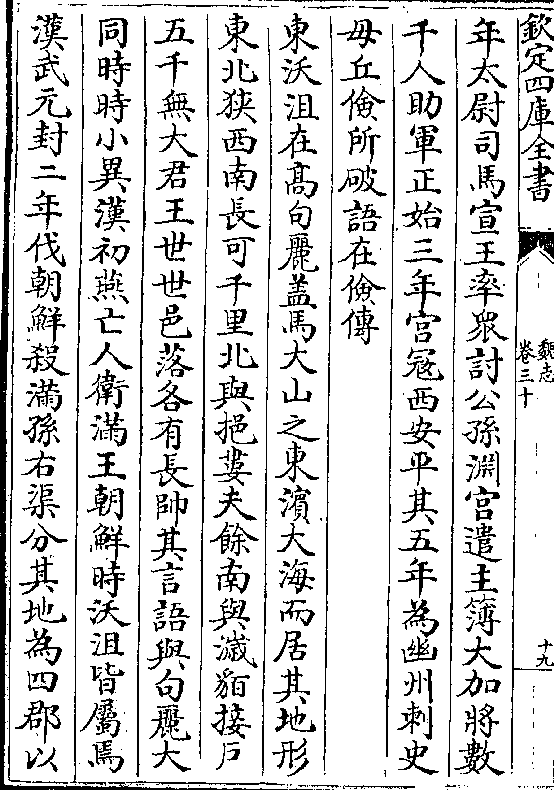 欽定四庫全書
魏志
卷三十
十九
年太尉司馬宣王率衆討公孫淵宫遣主簿大加將數
千人助軍正始三年宫冦西安平其五年為幽州刺史
毋丘儉所破語在儉傳
東沃沮在髙句麗盖馬大山之東濵大海而居其地形
東北狹西南長可千里北與挹婁夫餘南與濊貊接戸
五千無大君王世世邑落各有長帥其言語與句麗大
同時時小異漢初燕亡人衛滿王朝鮮時沃沮皆屬馬
漢武元封二年伐朝鮮殺滿孫右渠分其地為四郡以